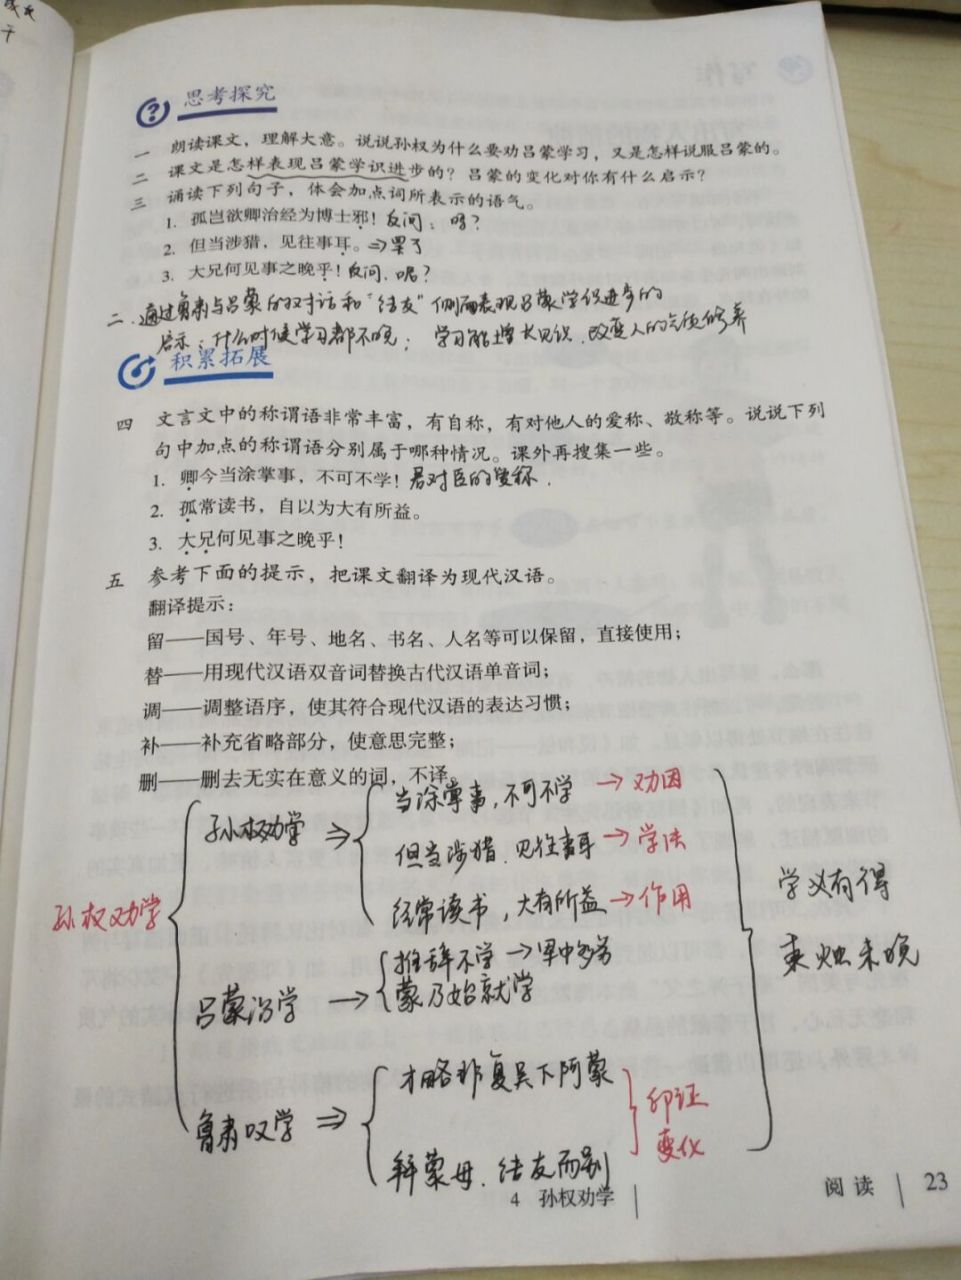 思考探究
一 朗读课文，理解大意。说说孙权为什么要劝吕蒙学习，又是怎样说服吕蒙的。
二 课文是怎样表现吕蒙学识进步的？吕蒙的变化对你有什么启示？
三 诵读下列句子，体会加点词所表示的语气。
1. 孤岂欲卿治经为博士邪！反问：吗？
2. 但当涉猎，见往事耳。⇒罢了
3. 大兄何见事之晚乎！反问，呢？
二、通过鲁肃与吕蒙的对话和“结友”侧面表现吕蒙学识进步的
启示：什么时候学习都不晚；学习能增长见识，改变人的气质修养
积累拓展
四 文言文中的称谓语非常丰富，有自称，有对他人的爱称、敬称等。说说下列
句中加点的称谓语分别属于哪种情况。课外再搜集一些。
1. 卿今当涂掌事，不可不学！君对臣的爱称．
2. 孤常读书，自以为大有所益。
3. 大兄何见事之晚乎！
五 参考下面的提示，把课文翻译为现代汉语。
翻译提示：
留——国号、年号、地名、书名、人名等可以保留，直接使用；
替——用现代汉语双音词替换古代汉语单音词；
调——调整语序，使其符合现代汉语的表达习惯；
补——补充省略部分，使意思完整；
删——删去无实在意义的词，不译。
孙权劝学
孙权劝学 ⇒
当涂掌事，不可不学 → 劝因
但当涉猎，见往事耳 → 学法
经常读书，大有所益 → 作用
吕蒙 学 →
推辞不学 → 军中多务
蒙乃始就学
鲁肃叹学 ⇒
才略非复吴下阿蒙
拜蒙母，结友而别
印证
变化
学义有得
秉烛未晚
4 孙权劝学
阅读 23